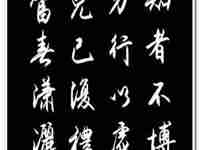 知者不博
力行以
克己復禮
富春瀟灑